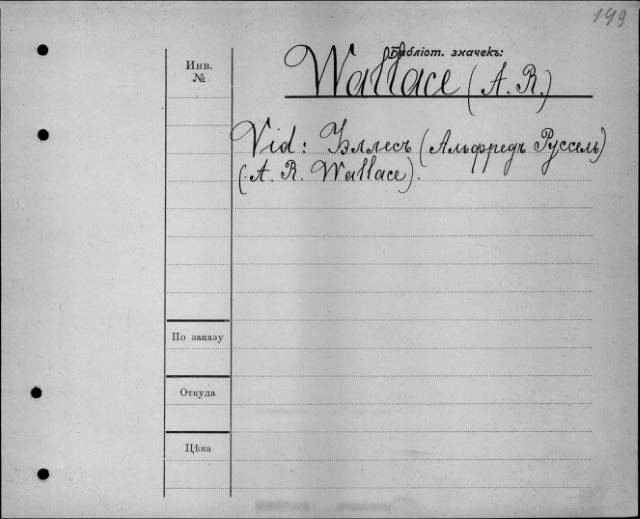 199
Библіот. значекъ:
Инв.
№
Wallace (A. R.)
Vid: Уэллесъ (Альфредъ Руссель)
(A. R. Wallace).
По заказу
Откуда
Цѣна